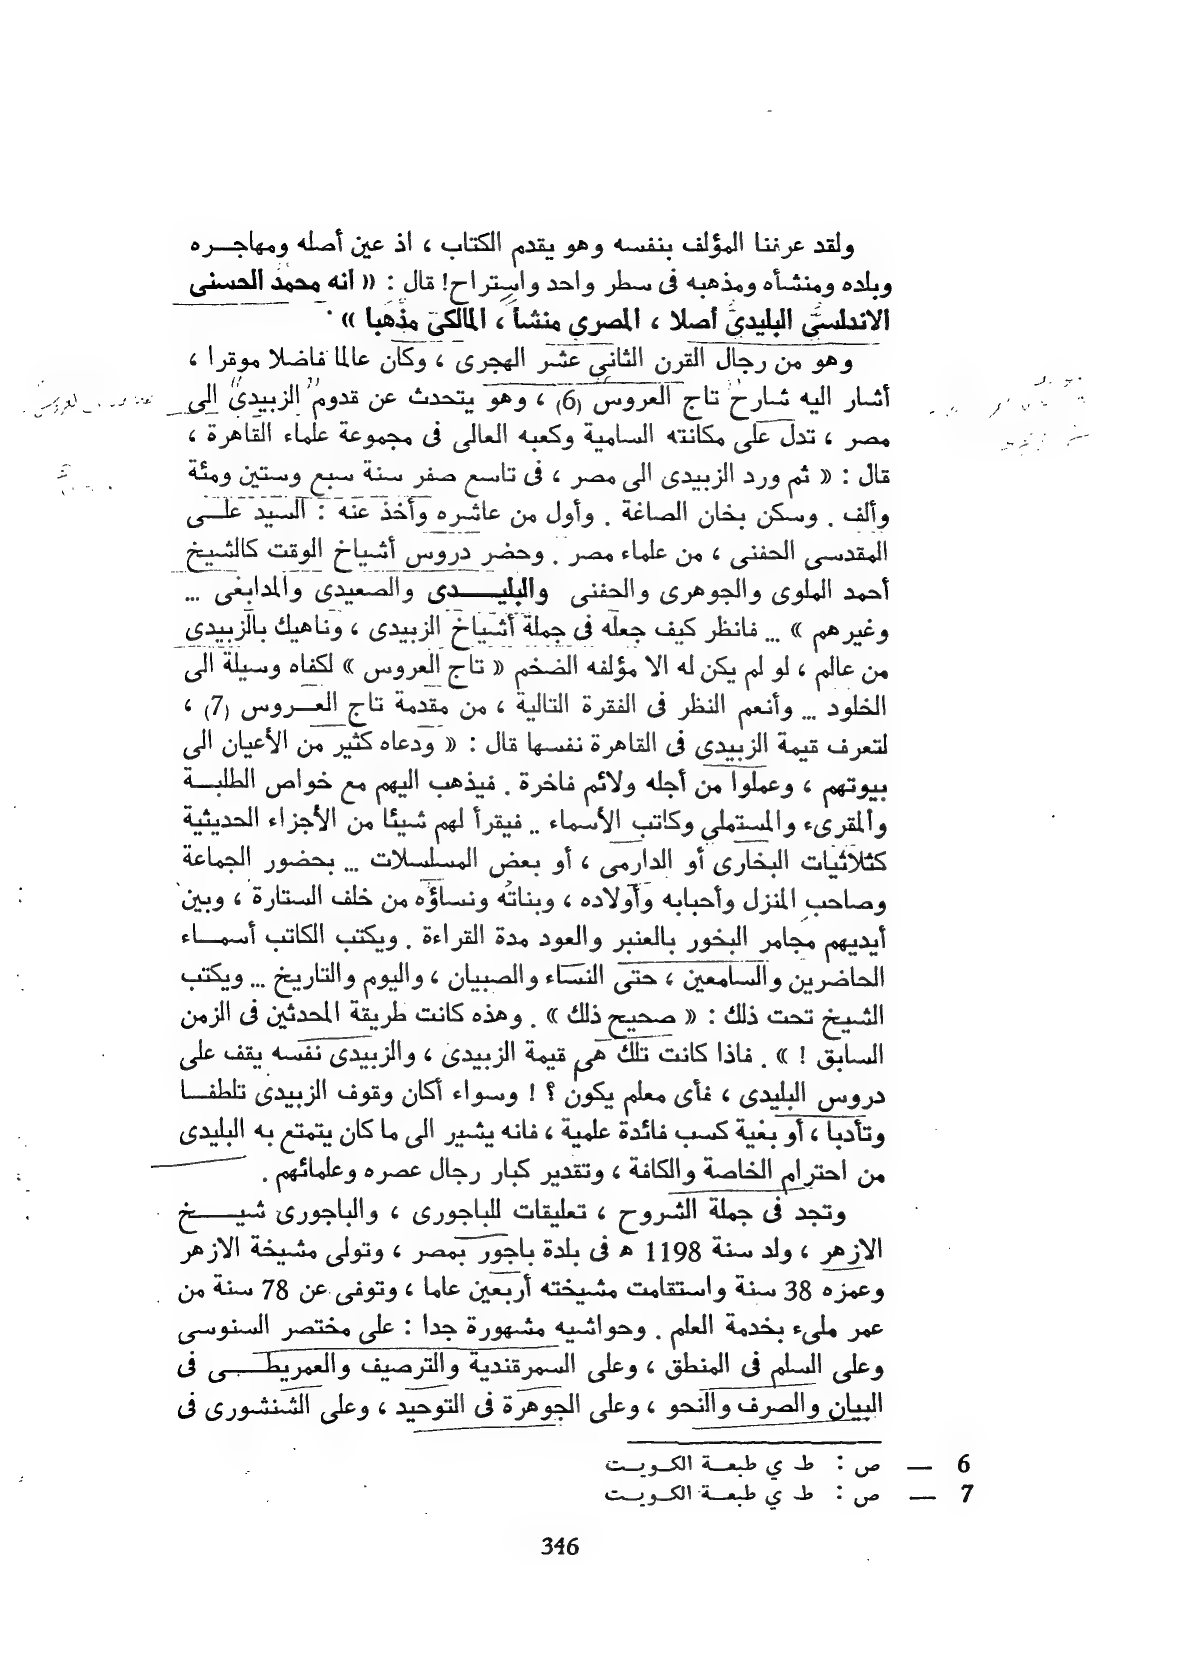 ولقد عرفنا المؤلف بنفسه وهو يقدم الكتاب ، اذ عين أصله ومهاجره
وبلده ومنشأه ومذهبه فى سطر واحد واستراح! قال : « انه محمد الحسنى
الاندلسى البليدى أصلا ، المصرى منشأ ، المالكى مذهبا » .
وهو من رجال القرن الثانى عشر الهجرى ، وكان عالما فاضلا موقرا ،
أشار اليه شارح تاج العروس (6) ، وهو يتحدث عن قدوم الزبيدى الى
مصر ، تدل على مكانته السامية وكعبه العالى فى مجموعة علماء القاهرة ،
قال : « ثم ورد الزبيدى الى مصر ، فى تاسع صفر سنة سبع وستين ومئة
وألف . وسكن بخان الصاغة . وأول من عاشره وأخذ عنه : السيد على
المقدسى الحفنى ، من علماء مصر . وحضر دروس أشياخ الوقت كالشيخ
أحمد الملوى والجوهرى والحفنى والبليدى والصعيدى والمدابغى ...
وغيرهم » ... فانظر كيف جعله فى جملة أشياخ الزبيدى ، وناهيك بالزبيدى
من عالم ، لو لم يكن له الا مؤلفه الضخم « تاج العروس » لكفاه وسيلة الى
الخلود ... وأنعم النظر فى الفقرة التالية ، من مقدمة تاج العروس (7) ،
لتعرف قيمة الزبيدى فى القاهرة نفسها قال : « ودعاه كثير من الأعيان الى
بيوتهم ، وعملوا من أجله ولائم فاخرة . فيذهب اليهم مع خواص الطلبة
والمقرىء والمستملى وكاتب الأسماء .. فيقرأ لهم شيئا من الأجزاء الحديثية
كثلاثيات البخارى أو الدارمى ، أو بعض المسلسلات ... بحضور الجماعة
وصاحب المنزل وأحبابه وأولاده ، وبناته ونساؤه من خلف الستارة ، وبين
أيديهم مجامر البخور بالعنبر والعود مدة القراءة . ويكتب الكاتب أسماء
الحاضرين والسامعين ، حتى النساء والصبيان ، واليوم والتاريخ ... ويكتب
الشيخ تحت ذلك : « صحيح ذلك » . وهذه كانت طريقة المحدثين فى الزمن
السابق ! » . فاذا كانت تلك هى قيمة الزبيدى ، والزبيدى نفسه يقف على
دروس البليدى ، فأى معلم يكون ؟ ! وسواء أكان وقوف الزبيدى تلطفا
وتأدبا ، أو بغية كسب فائدة علمية ، فانه يشير الى ما كان يتمتع به البليدى
من احترام الخاصة والكافة ، وتقدير كبار رجال عصره وعلمائهم .
وتجد فى جملة الشروح ، تعليقات للباجورى ، والباجورى شيخ
الازهر ، ولد سنة 1198 ه فى بلدة باجور بمصر ، وتولى مشيخة الازهر
وعمره 38 سنة واستقامت مشيخته أربعين عاما ، وتوفى عن 78 سنة من
عمر ملىء بخدمة العلم . وحواشيه مشهورة جدا : على مختصر السنوسى
وعلى السلم فى المنطق ، وعلى السمرقندية والترصيف والعمريطى فى
البيان والصرف والنحو ، وعلى الجوهرة فى التوحيد ، وعلى الشنشورى فى
6 — ص : ط ي طبعة الكويت
7 — ص : ط ي طبعة الكويت
346